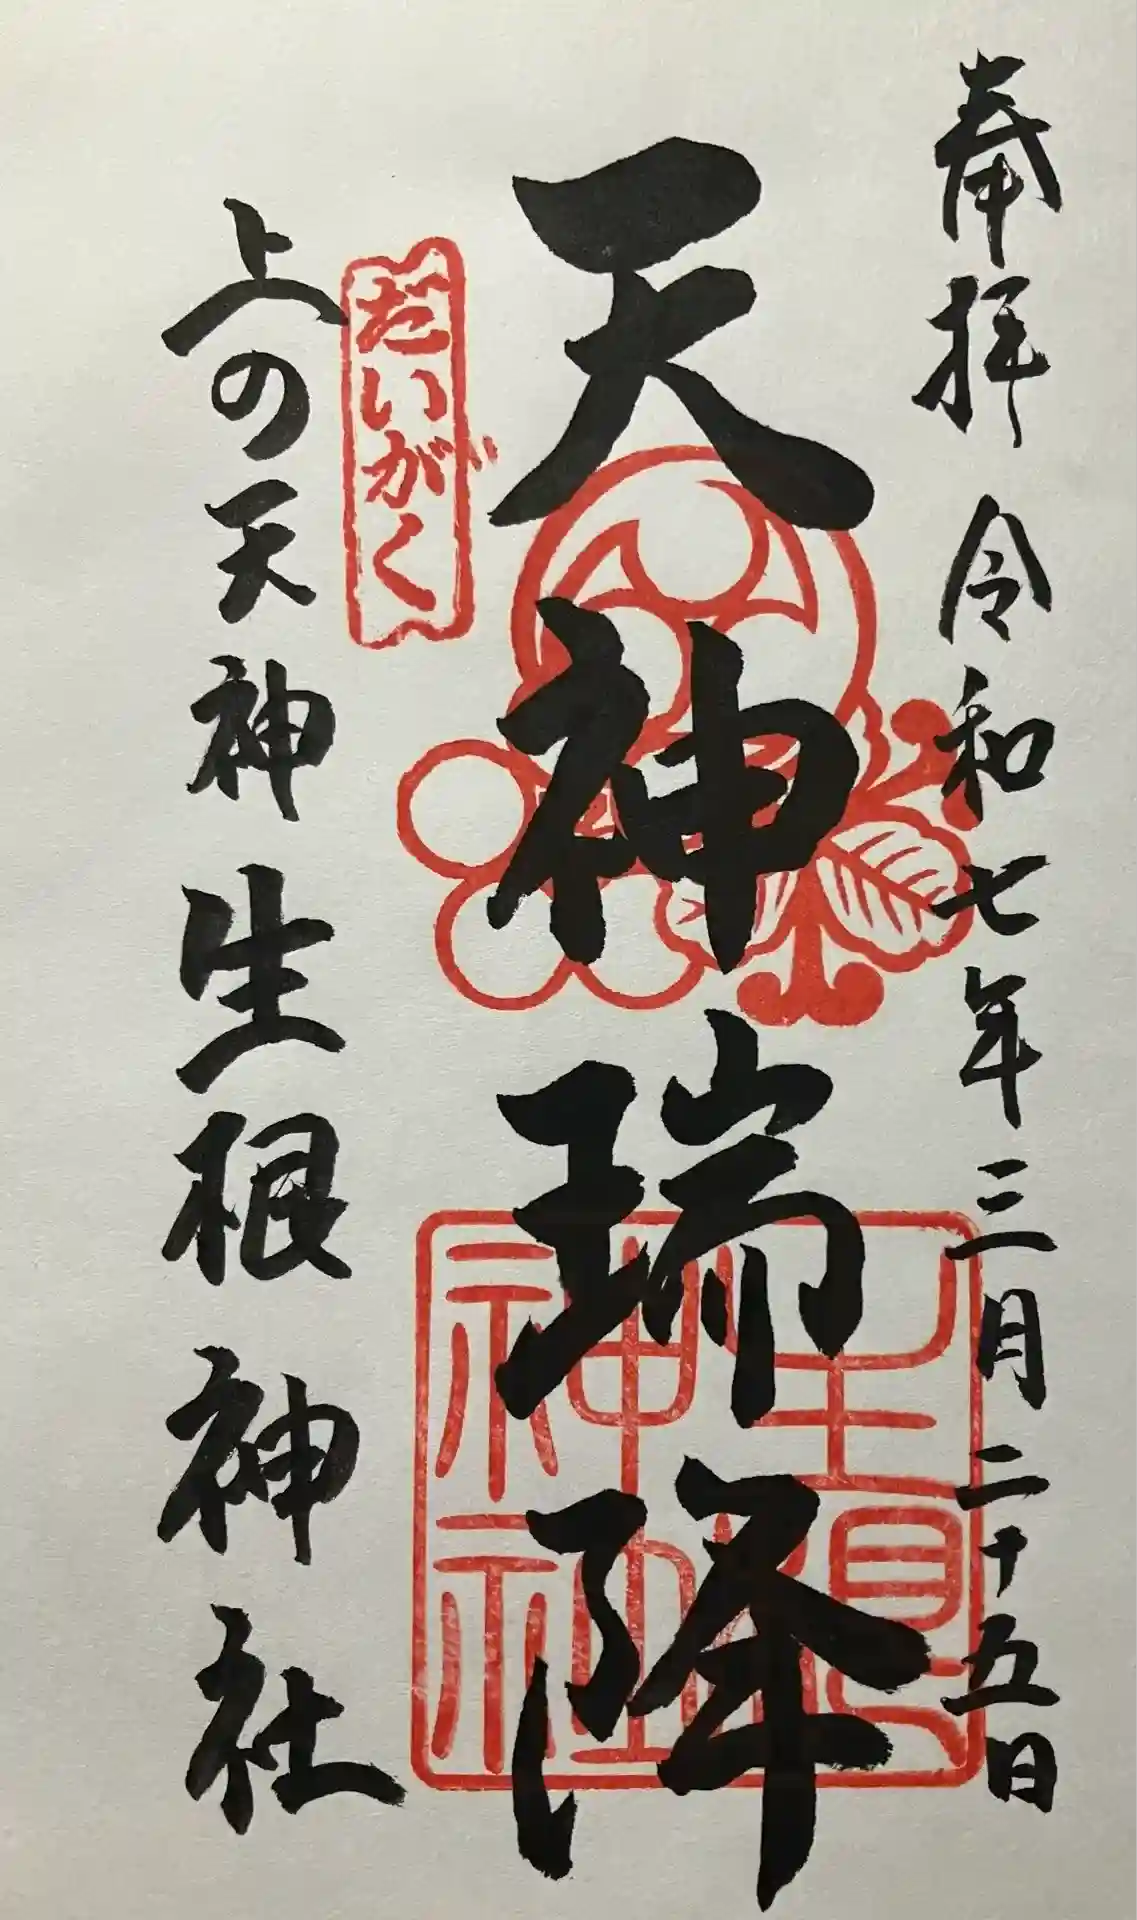 奉拝 令和七年三月二十五日
天神瑞降
だいがく
上の天神 生根神社
生根神社